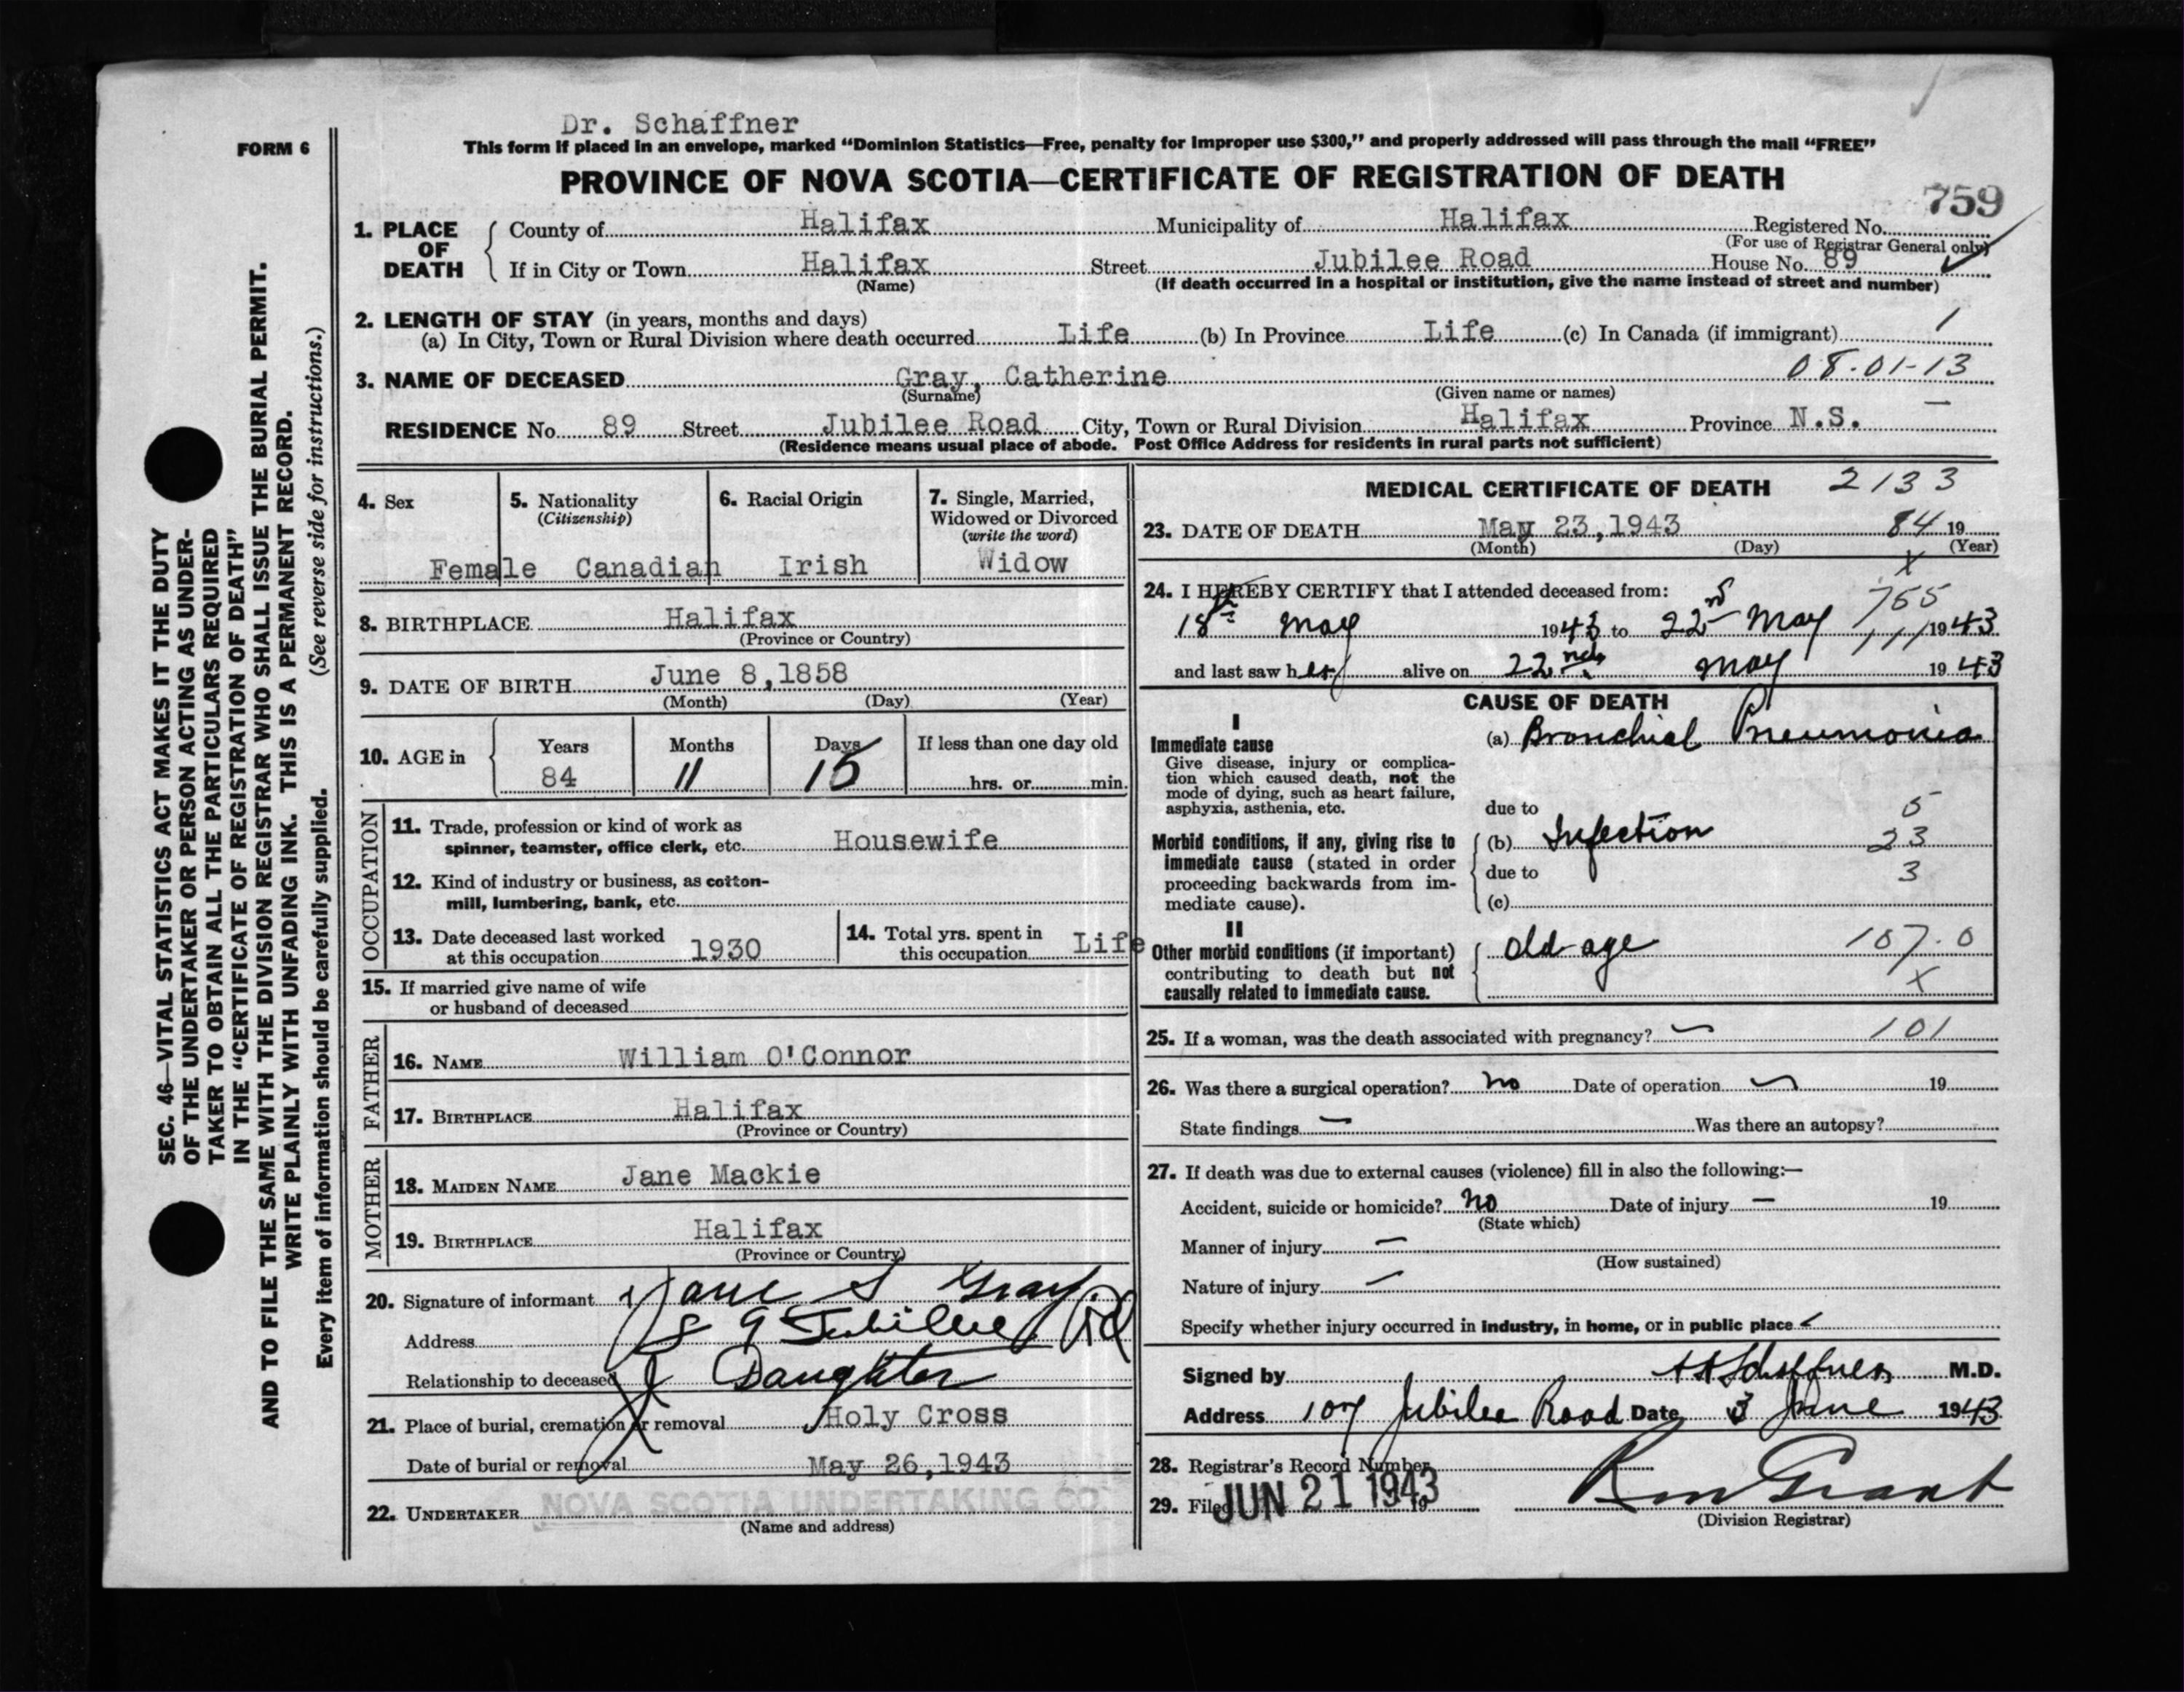 Dr. Schaffner
FORM 6
This form if placed in an envelope, marked “Dominion Statistics—Free, penalty for improper use $300,” and properly addressed will pass through the mail “FREE”
PROVINCE OF NOVA SCOTIA—CERTIFICATE OF REGISTRATION OF DEATH
759
1. PLACE OF DEATH
County of Halifax Municipality of Halifax Registered No.
(For use of Registrar General only)
If in City or Town Halifax Street Jubilee Road House No. 89
(Name) (If death occurred in a hospital or institution, give the name instead of street and number)
2. LENGTH OF STAY (in years, months and days)
(a) In City, Town or Rural Division where death occurred Life (b) In Province Life (c) In Canada (if immigrant) 1
3. NAME OF DECEASED Gray, Catherine 08.01-13
(Surname) (Given name or names)
RESIDENCE No. 89 Street Jubilee Road City, Town or Rural Division Halifax Province N.S.
(Residence means usual place of abode. Post Office Address for residents in rural parts not sufficient)
4. Sex
Female
5. Nationality
(Citizenship)
Canadian
6. Racial Origin
Irish
7. Single, Married,
Widowed or Divorced
(write the word)
Widow
8. BIRTHPLACE Halifax
(Province or Country)
9. DATE OF BIRTH June 8, 1858
(Month) (Day) (Year)
10. AGE in
Years Months Days If less than one day old
84 11 15 hrs. or min.
OCCUPATION
11. Trade, profession or kind of work as
spinner, teamster, office clerk, etc. Housewife
12. Kind of industry or business, as cotton-
mill, lumbering, bank, etc.
13. Date deceased last worked
at this occupation 1930
14. Total yrs. spent in
this occupation Life
15. If married give name of wife
or husband of deceased
FATHER
16. NAME William O'Connor
17. BIRTHPLACE Halifax
(Province or Country)
MOTHER
18. MAIDEN NAME Jane Mackie
19. BIRTHPLACE Halifax
(Province or Country)
20. Signature of informant Jane S Gray
Address 89 Jubilee Rd
Relationship to deceased Daughter
21. Place of burial, cremation or removal Holy Cross
Date of burial or removal May 26, 1943
22. UNDERTAKER NOVA SCOTIA UNDERTAKING CO
(Name and address)
MEDICAL CERTIFICATE OF DEATH 2133
23. DATE OF DEATH May 23, 1943 84 19
(Month) (Day) (Year)
X
24. I HEREBY CERTIFY that I attended deceased from:
755
18th May 1943 to 22nd May 1943
111
and last saw her alive on 22nd May 1943
CAUSE OF DEATH
I
Immediate cause
Give disease, injury or complica-
tion which caused death, not the
mode of dying, such as heart failure,
asphyxia, asthenia, etc.
(a) Bronchial Pneumonia
due to 5
Morbid conditions, if any, giving rise to
immediate cause (stated in order
proceeding backwards from im-
mediate cause).
(b) Infection 23
due to 3
(c)
II
Other morbid conditions (if important)
contributing to death but not
causally related to immediate cause.
Old age 107.0
X
25. If a woman, was the death associated with pregnancy? 101
26. Was there a surgical operation? no Date of operation 19
State findings — Was there an autopsy?
27. If death was due to external causes (violence) fill in also the following:—
Accident, suicide or homicide? no Date of injury — 19
(State which)
Manner of injury —
(How sustained)
Nature of injury —
Specify whether injury occurred in industry, in home, or in public place
Signed by Schaffner M.D.
Address 107 Jubilee Road Date 3 June 1943
28. Registrar's Record Number
29. Filed JUN 21 1943 19
Grant
(Division Registrar)
SEC. 46—VITAL STATISTICS ACT MAKES IT THE DUTY
OF THE UNDERTAKER OR PERSON ACTING AS UNDER-
TAKER TO OBTAIN ALL THE PARTICULARS REQUIRED
IN THE “CERTIFICATE OF REGISTRATION OF DEATH”
AND TO FILE THE SAME WITH THE DIVISION REGISTRAR WHO SHALL ISSUE THE BURIAL PERMIT.
WRITE PLAINLY WITH UNFADING INK. THIS IS A PERMANENT RECORD.
Every item of information should be carefully supplied. (See reverse side for instructions.)